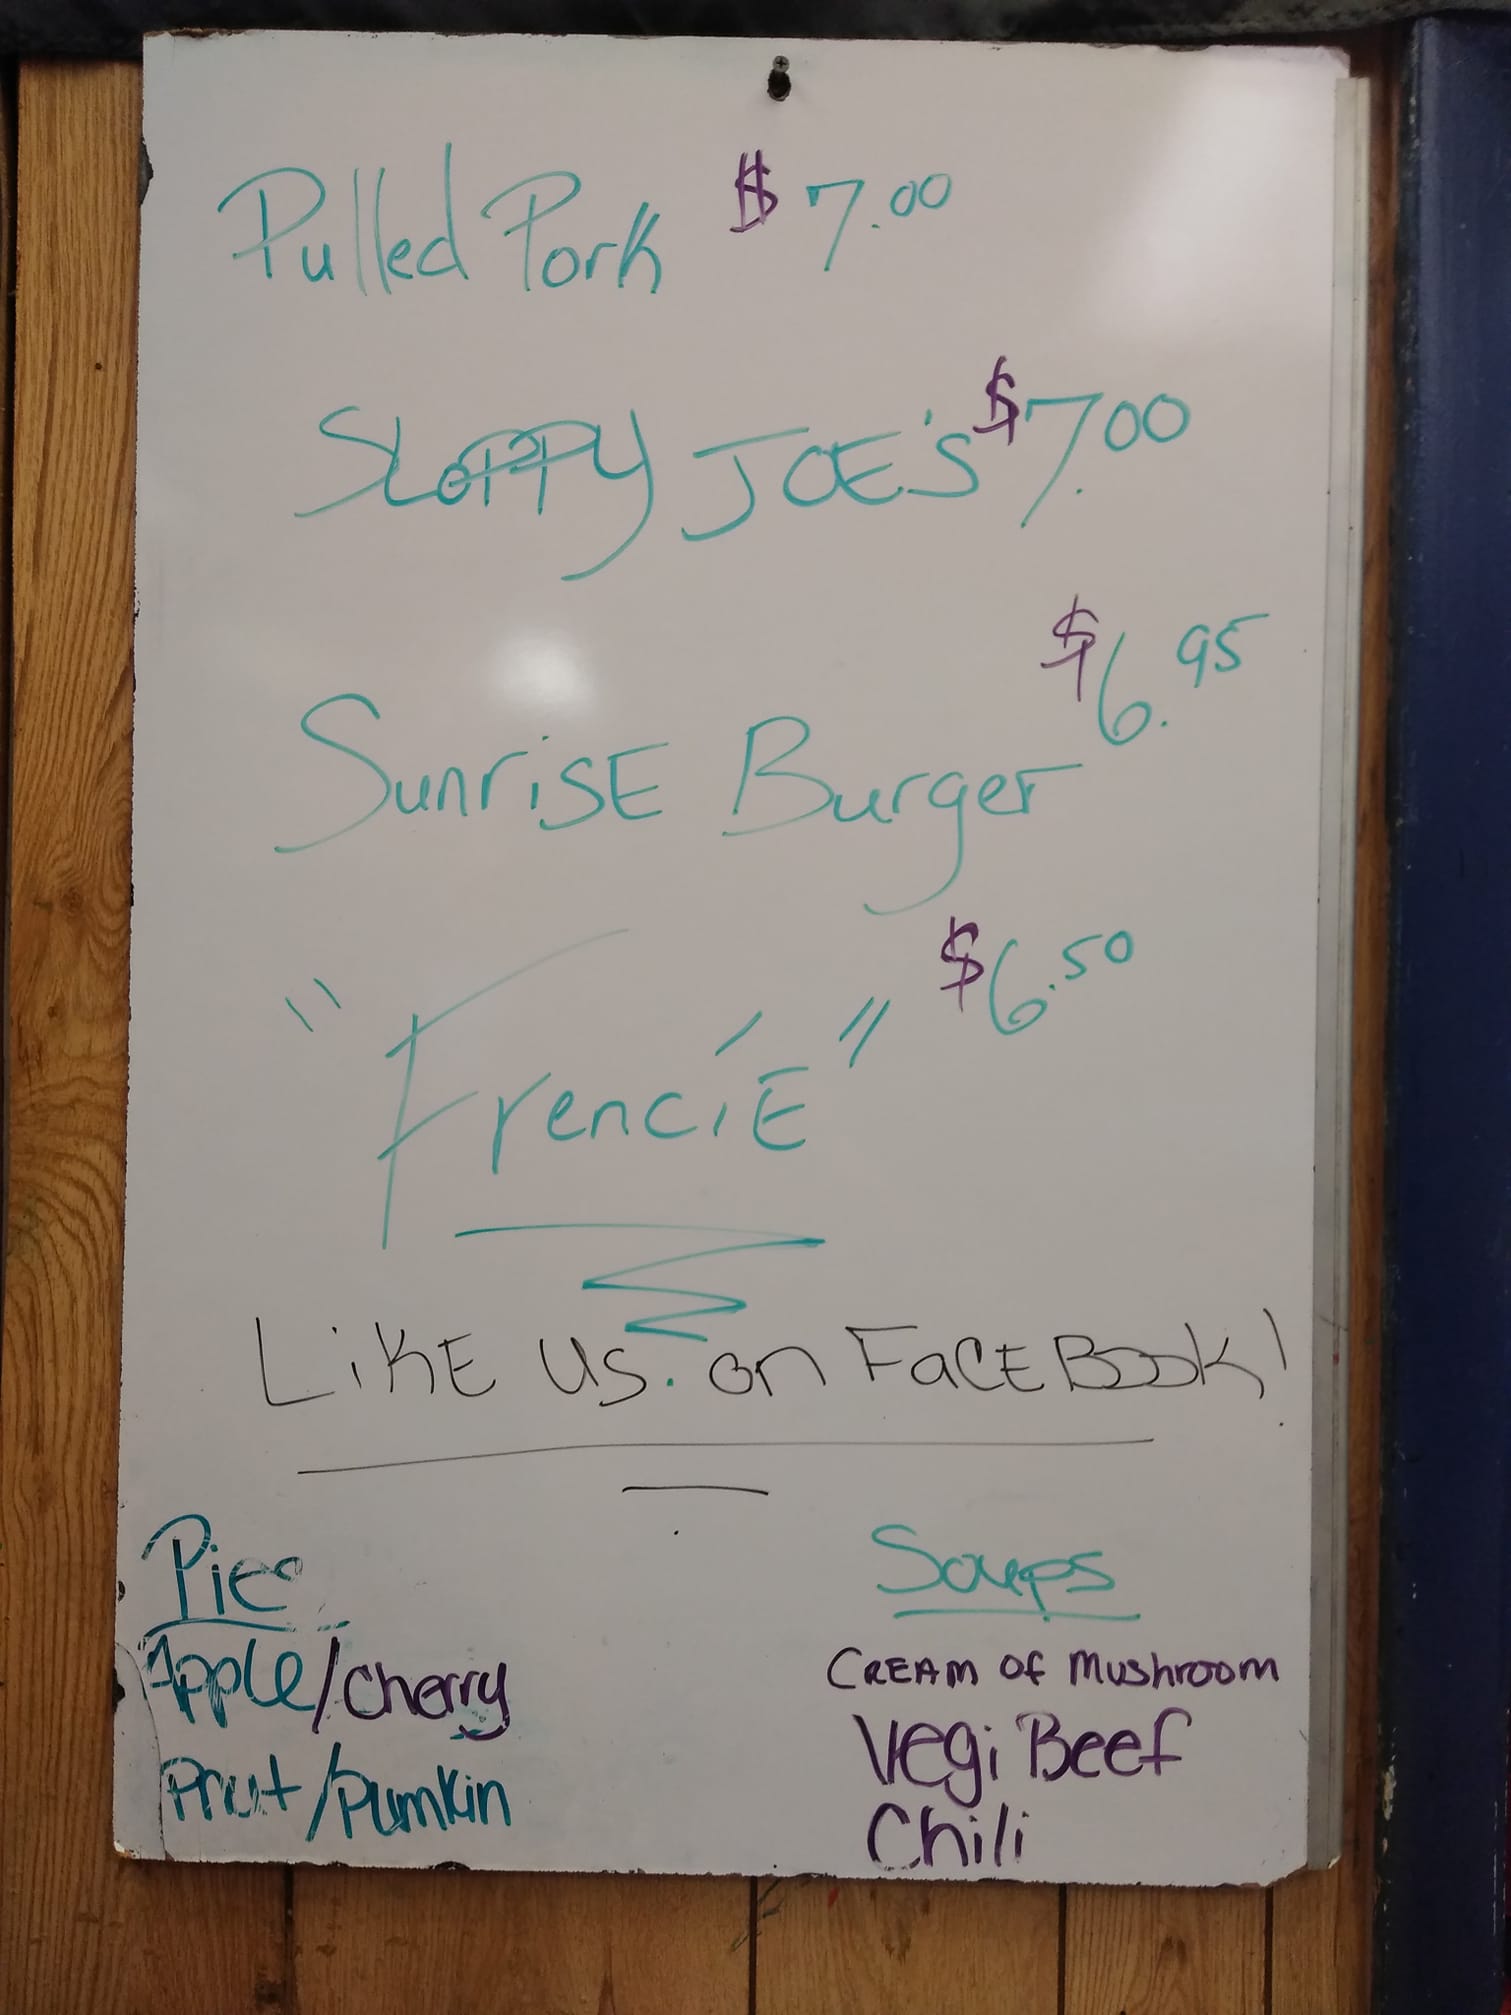 Pulled Pork $7.00
SLOPPY JOE'S $7.00
$6.95
SunriSE Burger
"FrenciE" $6.50
LiKE US. on FaCEBOOK!
Pies
Apple/Cherry
Prut/Pumkin
Soups
CREAM OF MUSHROOM
Vegi Beef
Chili